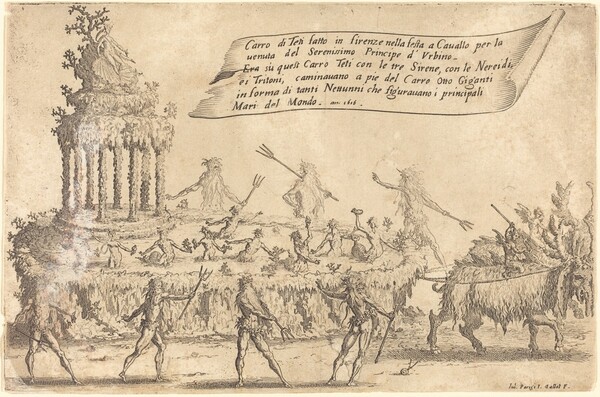 Carro di Teti fatto in firenze nella festa a Cauallo per la
uenuta del Serenissimo Principe d' Vrbino.
Era sù quest Carro Teti con le tre Sirene, con le Nereidi,
e i Tritoni, caminauano a pie del Carro Otto Giganti
in forma di tanti Nettunni che figurauano i principali
Mari del Mondo.
Iul. Parigi I. Callot F.